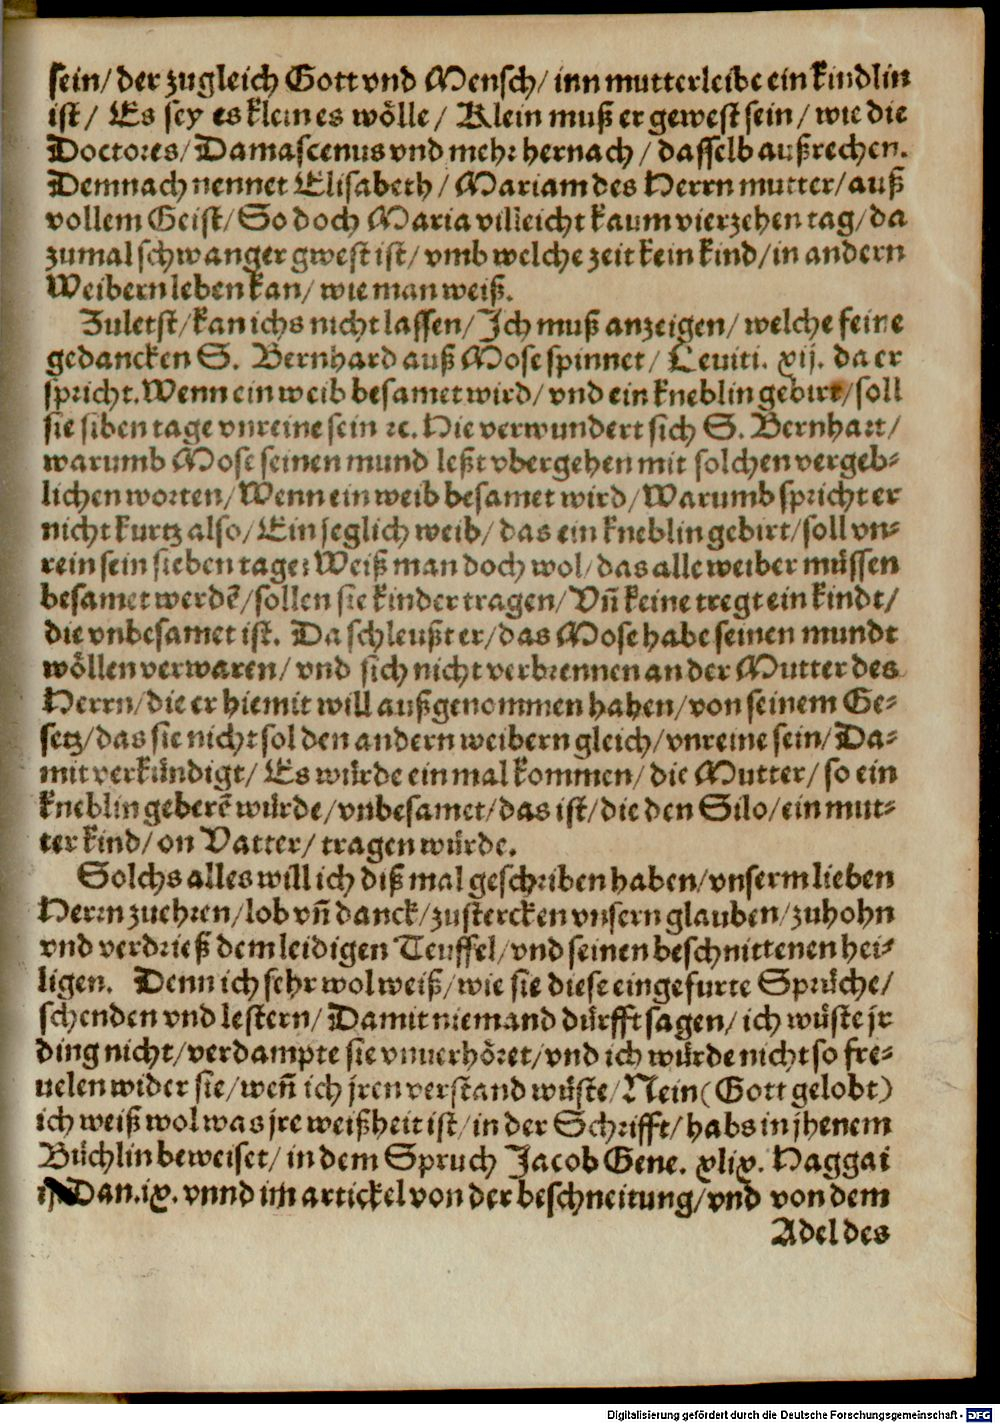 sein/ der zugleich Gott vnd Mensch/ inn mutterleibe ein kindlin
ist/ Es sey es klein es wölle/ Klein muß er gewest sein/ wie die
Doctores/ Damascenus vnd mehr hernach/ dasselb außrechen.
Demnach nennet Elisabeth/ Mariam des Herrn mutter/ auß
vollem Geist/ So doch Maria villeicht kaum vierzehen tag/ da
zumal schwanger gwest ist/ vmb welche zeit kein kind/ in andern
Weibern leben kan/ wie man weiß.
Zuletst/ kan ichs nicht lassen/ Ich muß anzeigen/ welche feine
gedancken S. Bernhard auß Mose spinnet/ Leuiti. xij. da er
spricht. Wenn ein weib besamet wird/ vnd ein kneblin gebirt/ soll
sie siben tage vnreine sein ꝛc. Hie verwundert sich S. Bernhart/
warumb Mose seinen mund leßt vbergehen mit solchen vergeb-
lichen worten/ Wenn ein weib besamet wird/ Warumb spricht er
nicht kurtz also/ Ein jeglich weib/ das ein kneblin gebirt/ soll vn-
rein sein sieben tage? Weiß man doch wol/ das alle weiber müssen
besamet werdē/ sollen sie kinder tragen/ Vñ keine tregt ein kindt/
die vnbesamet ist. Da schleußt er/ das Mose habe seinen mundt
wöllen verwaren/ vnd sich nicht verbrennen an der Mutter des
Herrn/ die er hiemit will außgenommen haben/ von seinem Ge-
setz/ das sie nicht sol den andern weibern gleich/ vnreine sein/ Da-
mit verkündigt/ Es würde ein mal kommen/ die Mutter/ so ein
kneblin geberē würde/ vnbesamet/ das ist/ die den Silo/ ein mut-
ter kind/ on Vatter/ tragen würde.
Solchs alles will ich diß mal geschriben haben/ vnserm lieben
Herrn zu ehren/ lob vñ danck/ zu stercken vnsern glauben/ zu hohn
vnd verdrieß dem leidigen Teuffel/ vnd seinen beschnittenen hei-
ligen. Denn ich sehr wol weiß/ wie sie diese eingefurte Sprüche/
schenden vnd lestern/ Damit niemand dürfft sagen/ ich wüste jr
ding nicht/ verdampte sie vnuerhöret/ vnd ich würde nicht so fre-
uelen wider sie/ weñ ich jren verstand wüste/ Nein (Gott gelobt)
ich weiß wol was jre weißheit ist/ in der Schrifft/ habs in jhenem
Büchlin beweiset/ in dem Spruch Jacob Gene. xlix. Haggai
Dan. ix. vnnd im artickel von der beschneitung/ vnd von dem
Adel des
Digitalisierung gefördert durch die Deutsche Forschungsgemeinschaft - DFG